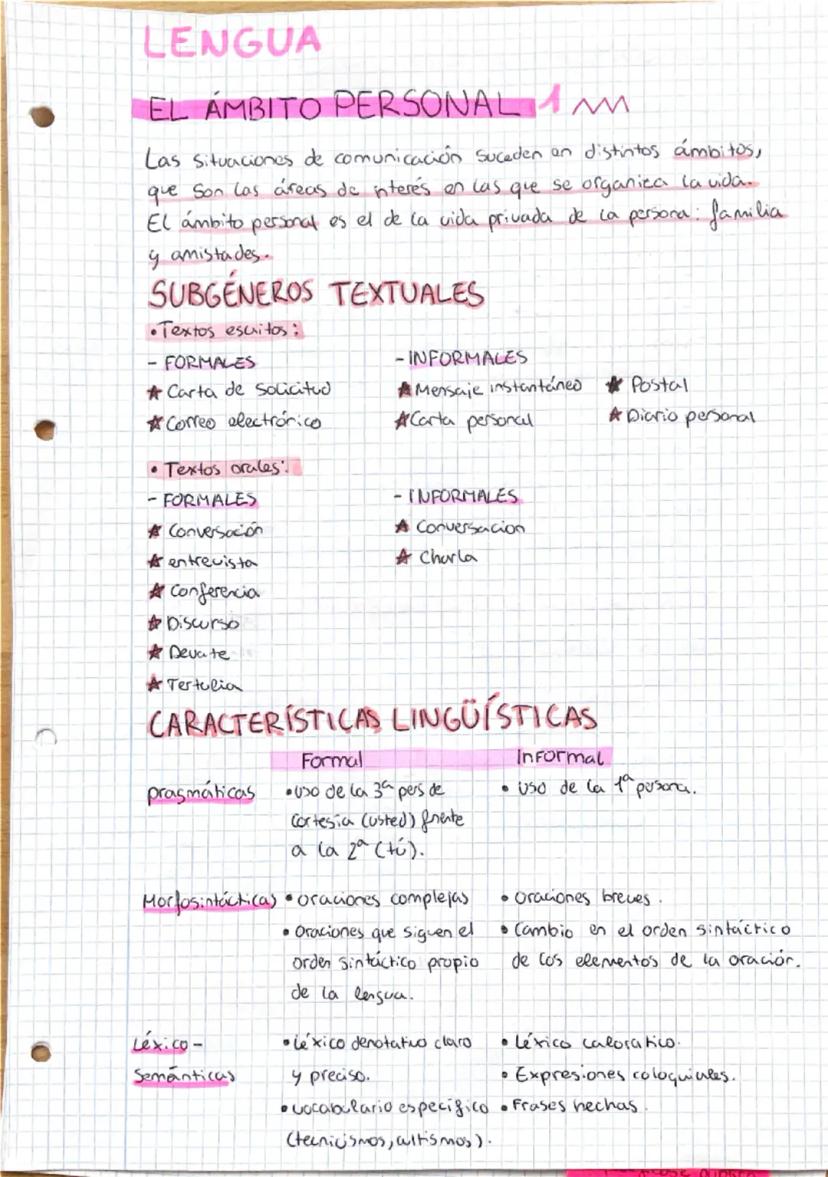 LENGUA
EL ÁMBITO PERSONAL 1
Las situaciones de comunicación suceden en distintos ámbitos,
que son las áreas de interés en las que se organiza la vida.
El ámbito personal es el de la vida privada de la persona: familia
y amistades.
SUBGÉNEROS TEXTUALES
• Textos escritos:
- FORMALES
★ Carta de solicitud
★ Correo electrónico
- INFORMALES
★ Mensaje instantáneo ★ Postal
★ Carta personal ★ Diario personal
• Textos orales:
- FORMALES
★ Conversación
★ entrevista
★ Conferencia
★ Discurso
★ Devate
★ Tertulia
- INFORMALES
★ Conversacion
★ Charla
CARACTERÍSTICAS LINGÜÍSTICAS
Formal Informal
pragmáticas
• uso de la 3ª pers de
cortesía (usted) frente
a la 2ª (tú).
• uso de la 1ª persona.
Morfosintácticas
• oraciones complejas
• Oraciones que siguen el
orden sintáctico propio
de la lengua.
• Oraciones breves.
• Cambio en el orden sintáctico
de los elementos de la oración.
Léxico-
semánticas
• Léxico denotativo claro
y preciso.
• vocabulario específico
(tecnicismos, cultismos).
• Léxico valorativo.
• Expresiones coloquiales.
• Frases hechas.